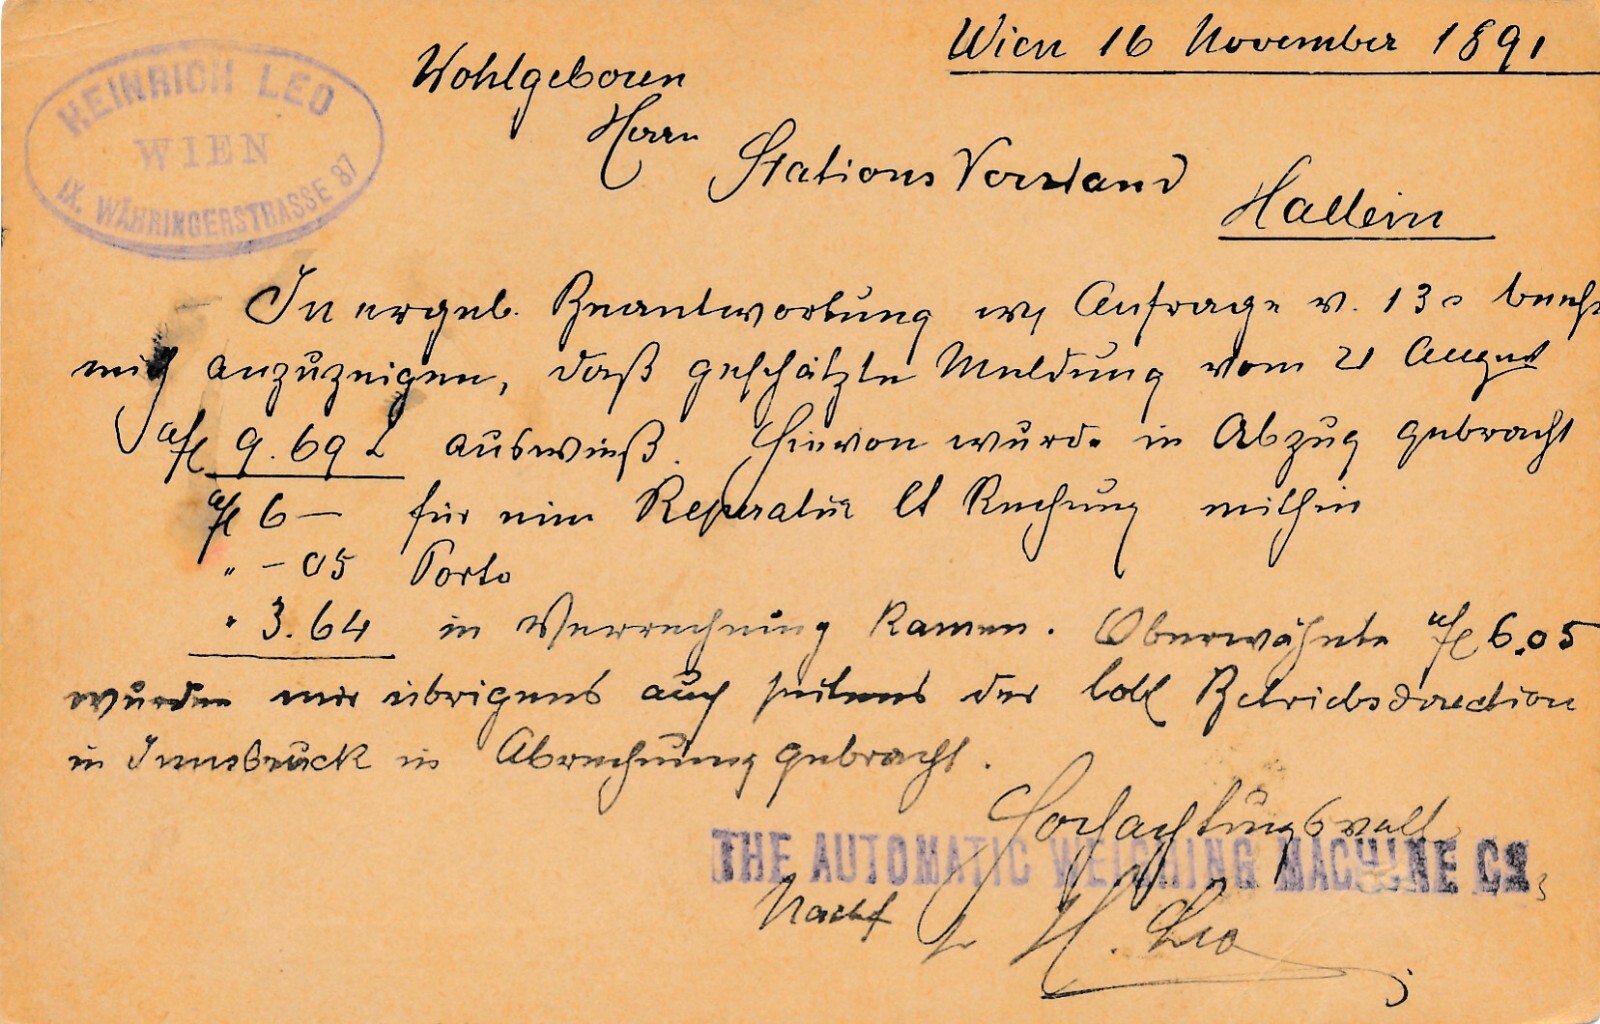 HEINRICH LEO
WIEN
IX. WÄHRINGERSTRASSE 37
Wien 16 November 1891
Wohlgeboren
Herrn
Stations Vorstand
Hallein
In ergeb. Beantwortung Anfrage v. 13 beehre
mich anzuzeigen, daß geschätzte Meldung vom 21 August
fl 9.69 auswieß. Hievon wurde in Abzug gebracht
fl 6 — für eine Reparatur lt Rechnung mithin
" — 05 Porto
" 3.64 in Verrechnung kamen. Oberwähnte fl 6.05
wurden mir übrigens auch seitens der löbl Betriebsdirection
in Innsbruck in Abrechnung gebracht.
Hochachtungsvoll
THE AUTOMATIC WEIGHING MACHINE Co.
Nachf H. Leo